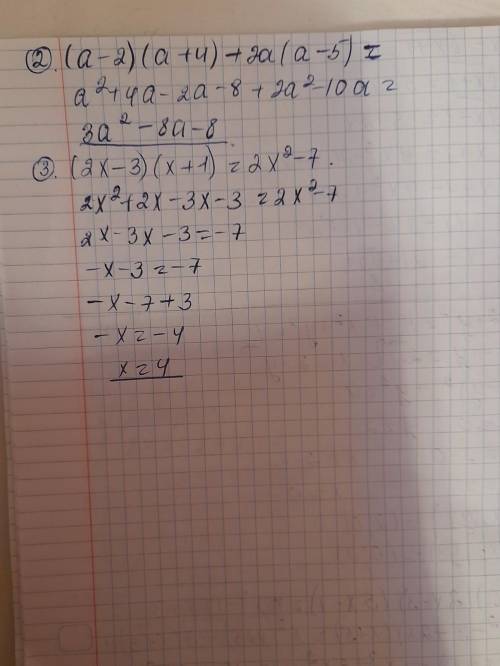 ②. (a-2)(a+4)+2a(a-5)=
a²+4a-2a-8+2a²-10a=
3a²-8a-8
③. (2x-3)(x+1)=2x²-7.
2x²+2x-3x-3=2x²-7
2x-3x-3=-7
-x-3=-7
-x-7+3
-x=-4
x=4